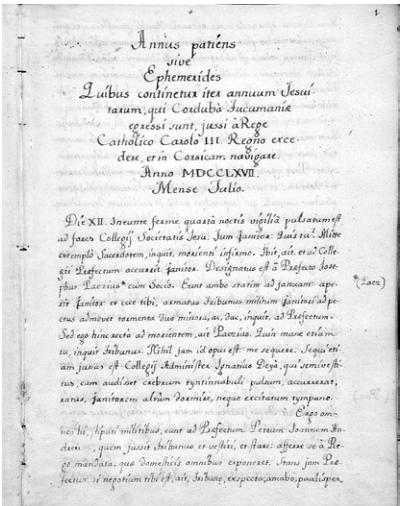 1
Annus patiens
sive
Ephemerides
Quibus continetur iter annuum Jesui
tarum, qui Corduba Tucumaniæ
egressi sunt, jussi à Rege
Catholico Carolo III. Regno exce-
dere, et in Corsicam navigare.
Anno MDCCLXVII.
Mense Julio.
Die XII. Ineunte ferme quartâ noctis vigiliâ pulsatum est
ad fores Collegij Societatis Jesu. Tum Janitor: Quis tu? Mitte
extemplo Sacerdotem, inquit, morienti infirmo. Ibit, ait, et ad Colle
gii Præfectum occurrit Janitor. Designatus est à Præfecto Jose-
phus Paezius* cum Socio. Eunt ambo statim ad januam: ape-
*(Paez)
rit Janitor et ecce tibi, armatus tribunus militum Janitori ad pe-
ctus admovet tormenta duo minora, ac, duc, inquit, ad Præfectum.
Sed ego hinc recta ad morientem, ait Paezius. Quin mane etiam
tu, inquit tribunus. Nihil jam id opus est: me sequere. Sequi eti-
am jussus est Collegij Administer Ignatius Deya, qui semivesti-
tus, cum audisset crebrum tyntinnabuli pulsum, accurrerat,
ratus, janitorem altum dormire, neque excitatum tympano.
Ergo om-
nes hi, stipati militibus, eunt ad Præfectum Petrum Joannem An-
dreu, quem jussit tribunus et vestiri, et stare: afferre se à Re-
ge mandata, quæ domesticis omnibus exponeret. Stans jam Præ-
fectus: si negotium tibi est, ait, tribune, exspecta, amabo, paulisper,